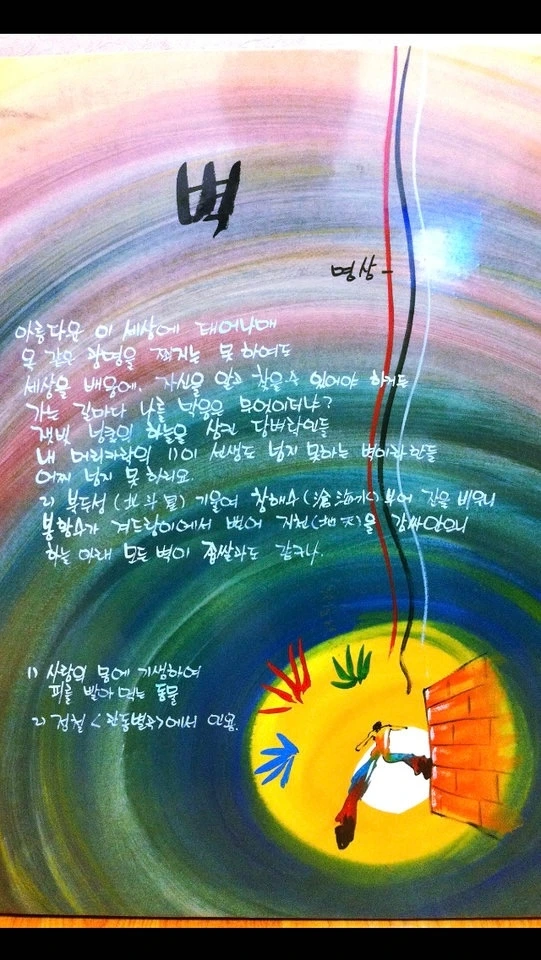 벽
명상
아름다운 이 세상에 태어나매
옥 같은 광명을 찍지는 못 하여도
세상을 배움에, 자신을 알고 찾을 수 있어야 하거늘
가는 길마다 나를 막음은 무엇이더냐?
잿빛 넝쿨의 하늘을 삼킨 담벼락인들
내 머리카락의 1)이 선생도 넘지 못하는 벽이라한들
어찌 넘지 못 하리요.
2) 북두성(北斗星) 기울여 창해수(滄海水) 부어 잔을 비우니
봉황수가 겨드랑이에서 뻗어 지천(地天)을 감싸안으니
하늘 아래 모든 벽이 좁쌀과도 같구나.
1) 사람의 몸에 기생하여
피를 빨아 먹는 동물
2) 정철 <관동별곡>에서 인용.